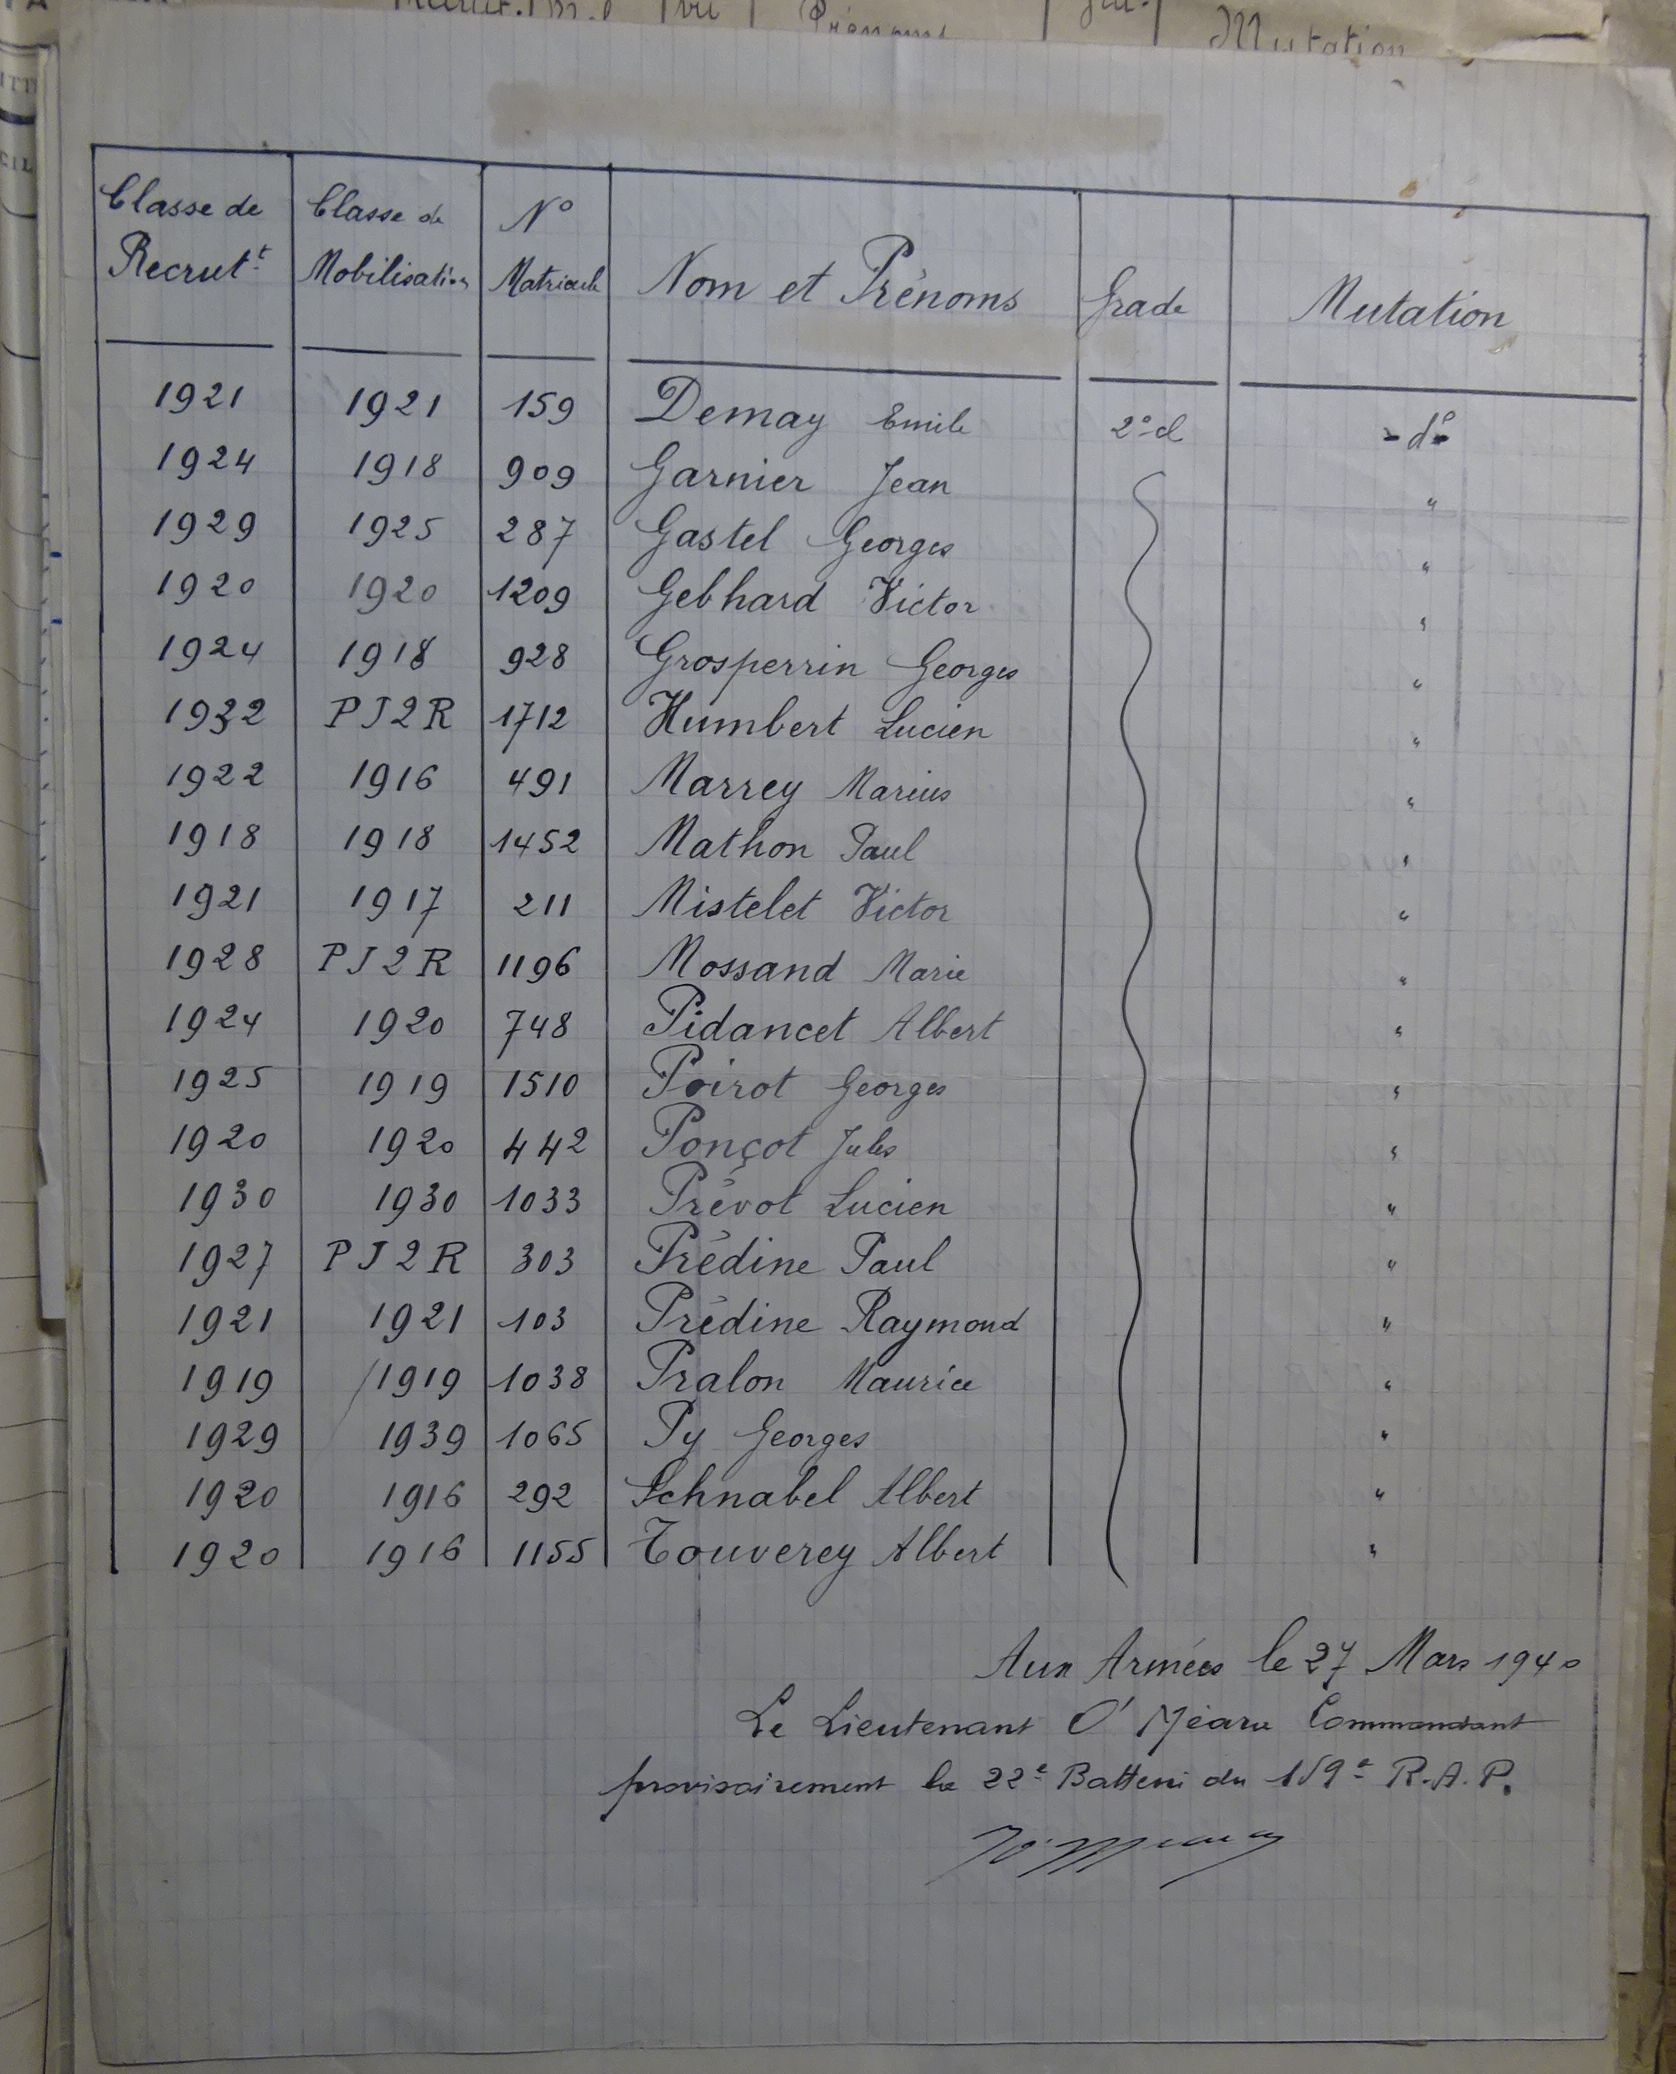 Prénoms Mutation
Classe de Recrutt Classe de Mobilisation No Matricule Nom et Prénoms Grade Mutation
1921 1921 159 Demay Emile 2e cl - do -
1924 1918 909 Garnier Jean "
1929 1925 287 Gastel Georges "
1920 1920 1209 Gebhard Victor "
1924 1918 928 Grosperrin Georges "
1932 PJ2R 1712 Humbert Lucien "
1922 1916 491 Marrey Marius "
1918 1918 1452 Mathon Paul "
1921 1917 211 Mistelet Victor "
1928 PJ2R 1196 Mossand Marie "
1924 1920 748 Pidancet Albert "
1925 1919 1510 Poirot Georges "
1920 1920 442 Ponçot Jules "
1930 1930 1033 Prévot Lucien "
1927 PJ2R 303 Prédine Paul "
1921 1921 103 Prédine Raymond "
1919 1919 1038 Pralon Maurice "
1929 1939 1065 Py Georges "
1920 1916 292 Schnabel Albert "
1920 1916 1155 Touverey Albert "
Aux Armées le 27 Mars 1940
Le Lieutenant O'Méara Commandant
provisairement la 22e Batterie du 159e R.A.P.